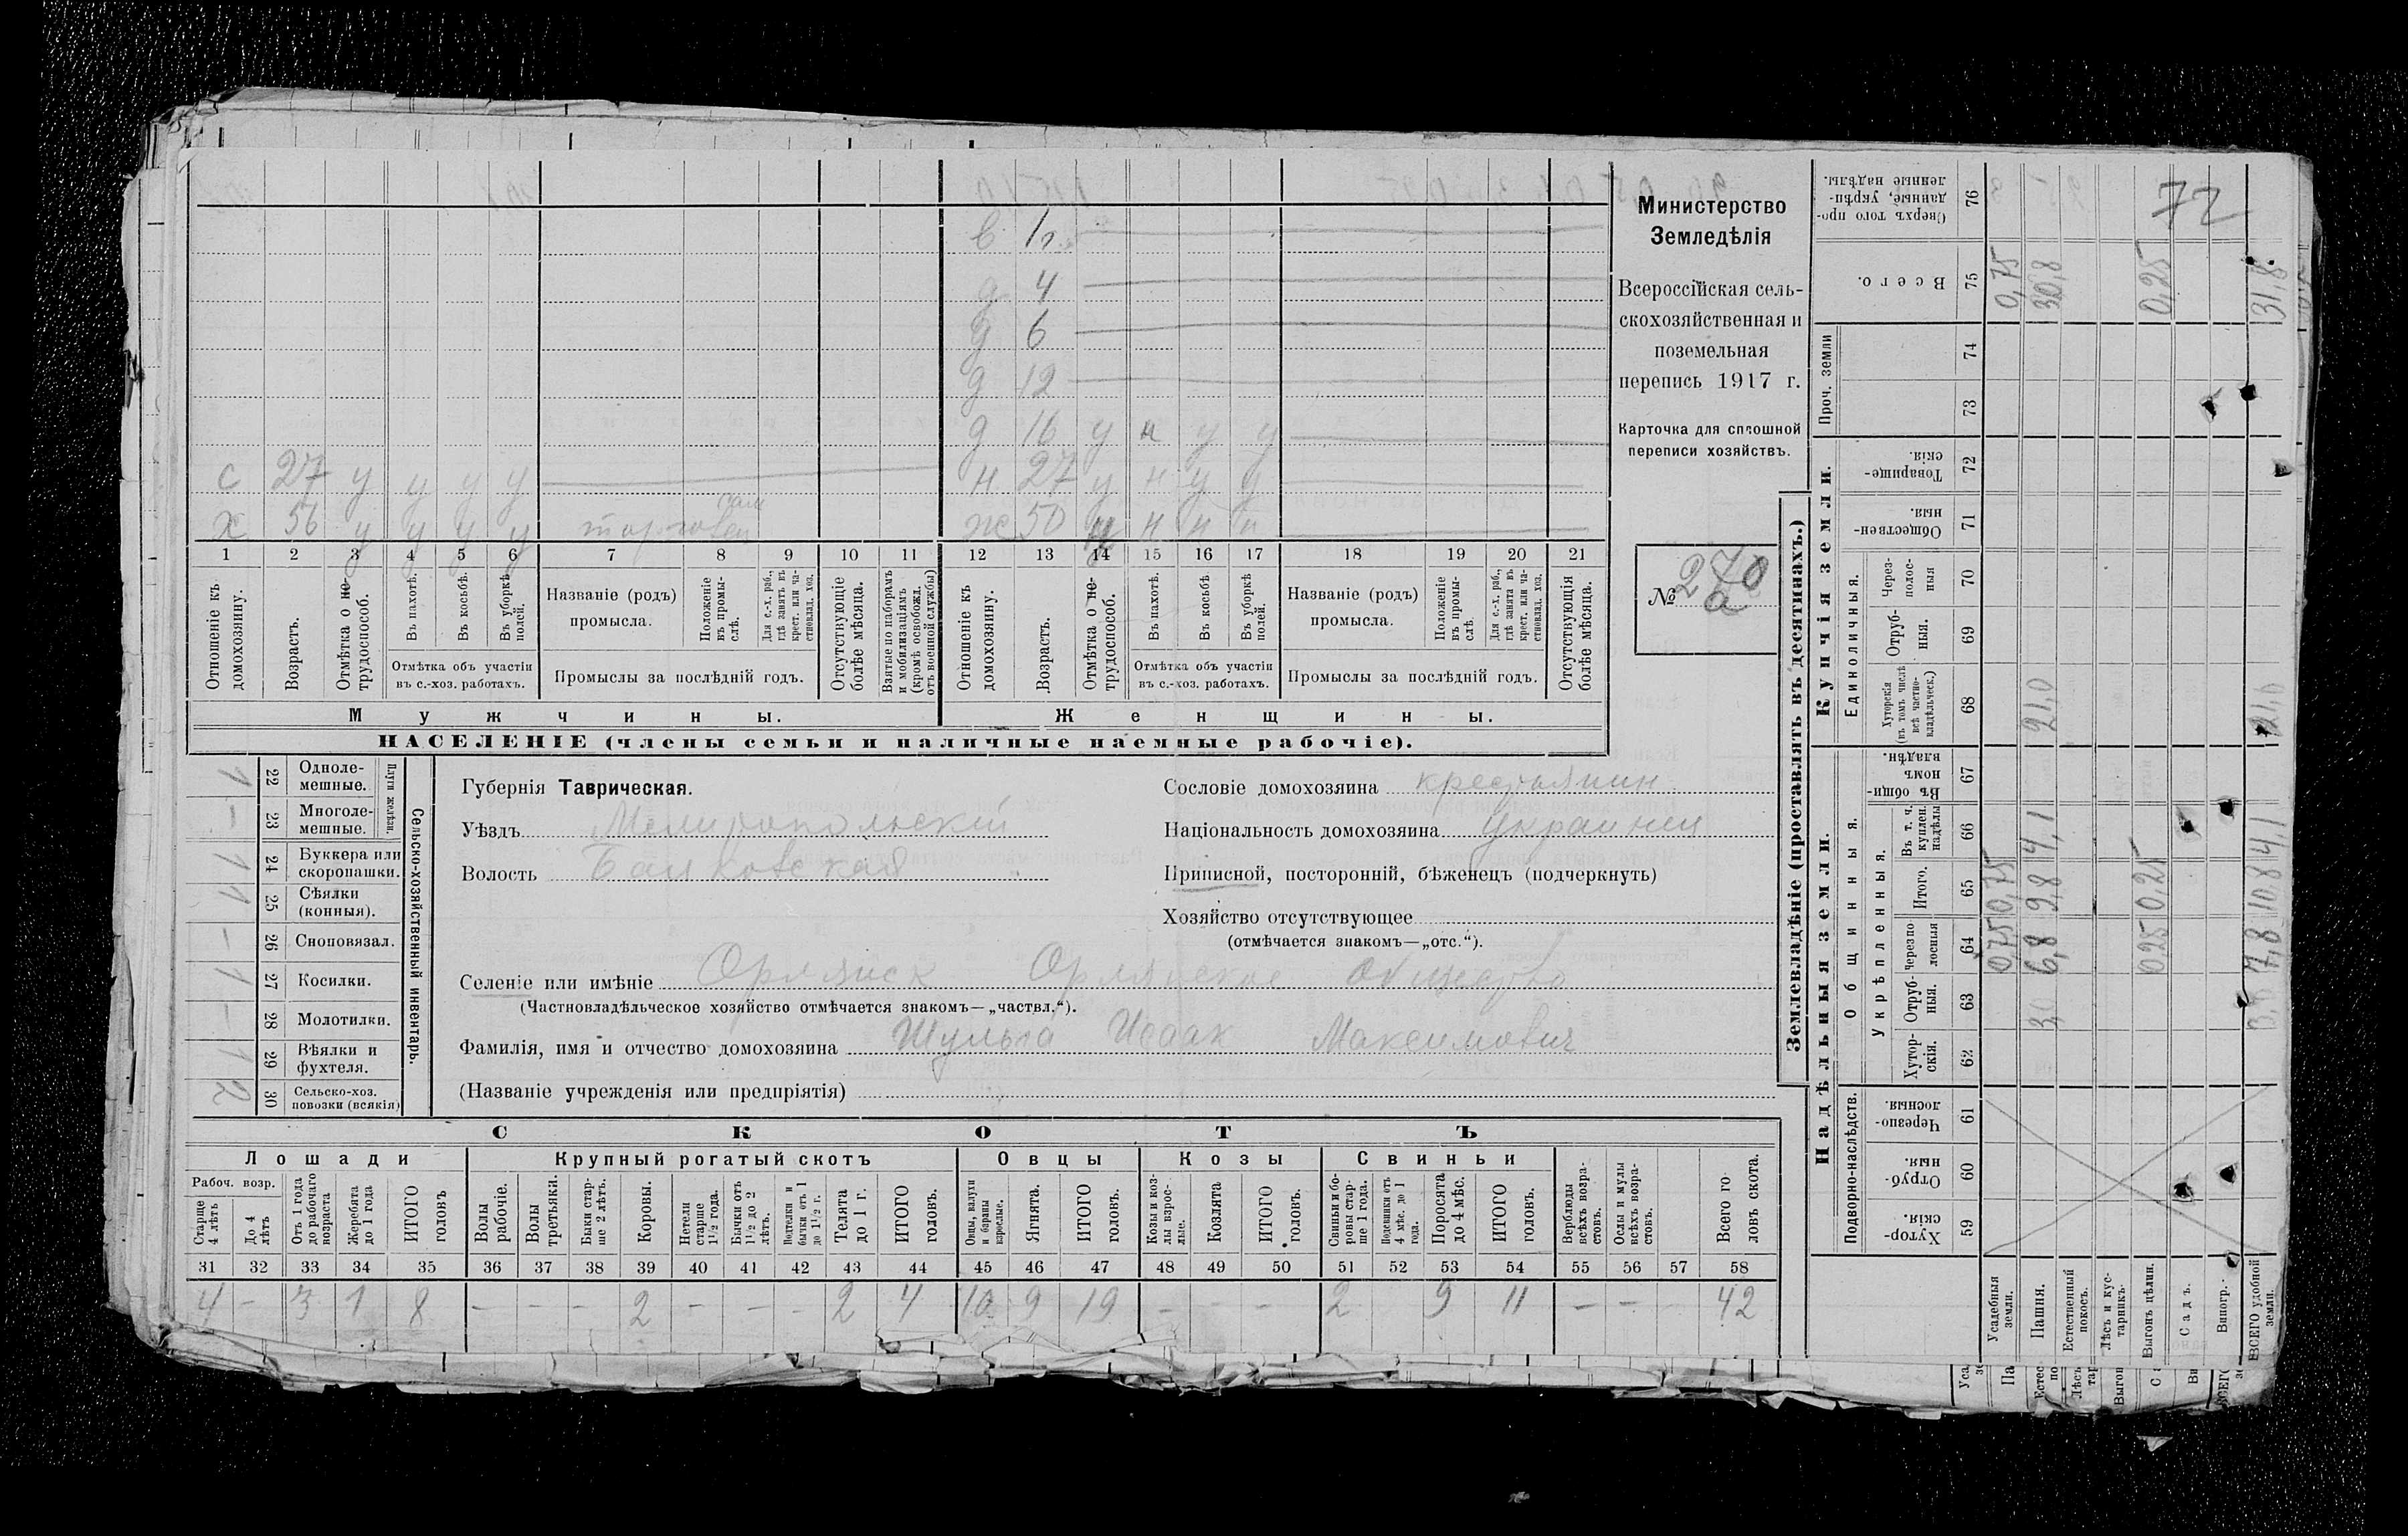 72
Министерство
Земледѣлія
Всероссійская сель-
скохозяйственная и
поземельная
перепись 1917 г.
Карточка для сплошной
переписи хозяйствъ.
№ 270
а
в 1 г.
д 4
д 6
д 12
д 16 у н у у
с 27 у у у у н 27 у н у у
х 56 у у у у торговец сам ж 50 у н н н
1 2 3 4 5 6 7 8 9 10 11 12 13 14 15 16 17 18 19 20 21
Отношеніе къ домохозяину.
Возрастъ.
Отмѣтка о не-трудоспособ.
Въ пахотѣ.
Въ косьбѣ.
Въ уборкѣ полей.
Отмѣтка объ участіи въ с.-хоз. работахъ.
Названіе (родъ) промысла.
Положеніе въ промы-слѣ.
Для с.-х. раб., гдѣ занятъ въ крест. или ча-стновлад. хоз.
Промыслы за послѣдній годъ.
Отсутствующіе болѣе мѣсяца.
Взятые по наборамъ и мобилизаціямъ (кромѣ освобожд. отъ военной службы)
Отношеніе къ домохозяину.
Возрастъ.
Отмѣтка о не-трудоспособ.
Въ пахотѣ.
Въ косьбѣ.
Въ уборкѣ полей.
Отмѣтка объ участіи въ с.-хоз. работахъ.
Названіе (родъ) промысла.
Положеніе въ промы-слѣ.
Для с.-х. раб., гдѣ занята въ крест. или ча-стновлад. хоз.
Промыслы за послѣдній годъ.
Отсутствующія болѣе мѣсяца.
Мужчины.
Женщины.
НАСЕЛЕНІЕ (члены семьи и наличные наемные рабочіе).
Сельско-хозяйственный инвентарь.
Плуги желѣзн.
1 22 Одноле-мешные.
– 23 Многоле-мешные.
1 24 Буккера или скоропашки.
1 25 Сѣялки (конныя).
– 26 Сноповязал.
1 27 Косилки.
– 28 Молотилки.
1 29 Вѣялки и фухтеля.
2 30 Сельско-хоз. повозки (всякія)
Губернія Таврическая.
Уѣздъ Мелитопольский
Волость Балковская
Сословіе домохозяина крестьянин
Національность домохозяина украинец
Приписной, посторонній, бѣженецъ (подчеркнуть)
Хозяйство отсутствующее
(отмѣчается знакомъ—„отс.“).
Селеніе или имѣніе Орлянск Орлянское общество
(Частновладѣльческое хозяйство отмѣчается знакомъ—„частвл.“).
Фамилія, имя и отчество домохозяина Шульга Исаак Максимович
(Названіе учрежденія или предпріятія)
СКОТЪ
Лошади
Крупный рогатый скотъ
Овцы
Козы
Свиньи
Рабоч. возр.
Старше 4 лѣтъ
До 4 лѣтъ
Отъ 1 года до рабочаго возраста
Жеребята до 1 года
ИТОГО головъ
Волы рабочіе.
Волы третьяки.
Быки стар-ше 2 лѣтъ.
Коровы.
Нетели старше 1½ года.
Бычки отъ 1½ до 2 лѣтъ.
Подтелки и бычки отъ 1 до 1½ г.
Телята до 1 г.
ИТОГО головъ.
Овцы, валухи и бараны взрослые.
Ягнята.
ИТОГО головъ.
Козы и коз-лы взрос-лые.
Козлята
ИТОГО головъ.
Свиньи и бо-ровы стар-ше 1 года.
Подсвинки отъ 4 мѣс. до 1 года.
Поросята до 4 мѣс.
ИТОГО головъ.
Верблюды всѣхъ возра-стовъ.
Ослы и мулы всѣхъ возра-стовъ.
Всего го ловъ скота.
31 32 33 34 35 36 37 38 39 40 41 42 43 44 45 46 47 48 49 50 51 52 53 54 55 56 57 58
4 – 3 1 8 – – – 2 – – – 2 4 10 9 19 – – – 2 9 11 – – 42
Землевладѣніе (проставлять въ десятинахъ.)
Надѣльныя земли.
Купчія земли.
Проч. земли
Подворно-наслѣдств.
Общинныя.
Укрѣпленныя.
Единоличныя.
Хутор-скія. 59
Отруб-ныя. 60
Черезпо-лосныя. 61
Хутор-скія. 62
Отруб-ныя. 63
Черезпо лосныя 64
Итого. 65
Въ т. ч. куплен. надѣлы 66
Въ общи-номъ владѣн. 67
Хуторскія (въ томъ числѣ всѣ частно-владѣльческ.) 68
Отруб-ныя. 69
Через-полос-ныя 70
Обществен-ныя. 71
Товарище-скія. 72
73
74
Всего. 75
Сверхъ того про-данные, укрѣп-ленные надѣлы. 76
Усадебныя земли. 0,75 0,75 0,75
Пашня. 3,0 6,8 9,8 4,1 21,0 30,8
Естественный покосъ.
Лѣсъ и кус-тарникъ.
Выгонъ цѣлин. 0,25 0,25 0,25
Садъ.
Виногр.
ВСЕГО удобной земли. 3,0 7,8 10,8 4,1 21,0 31,8